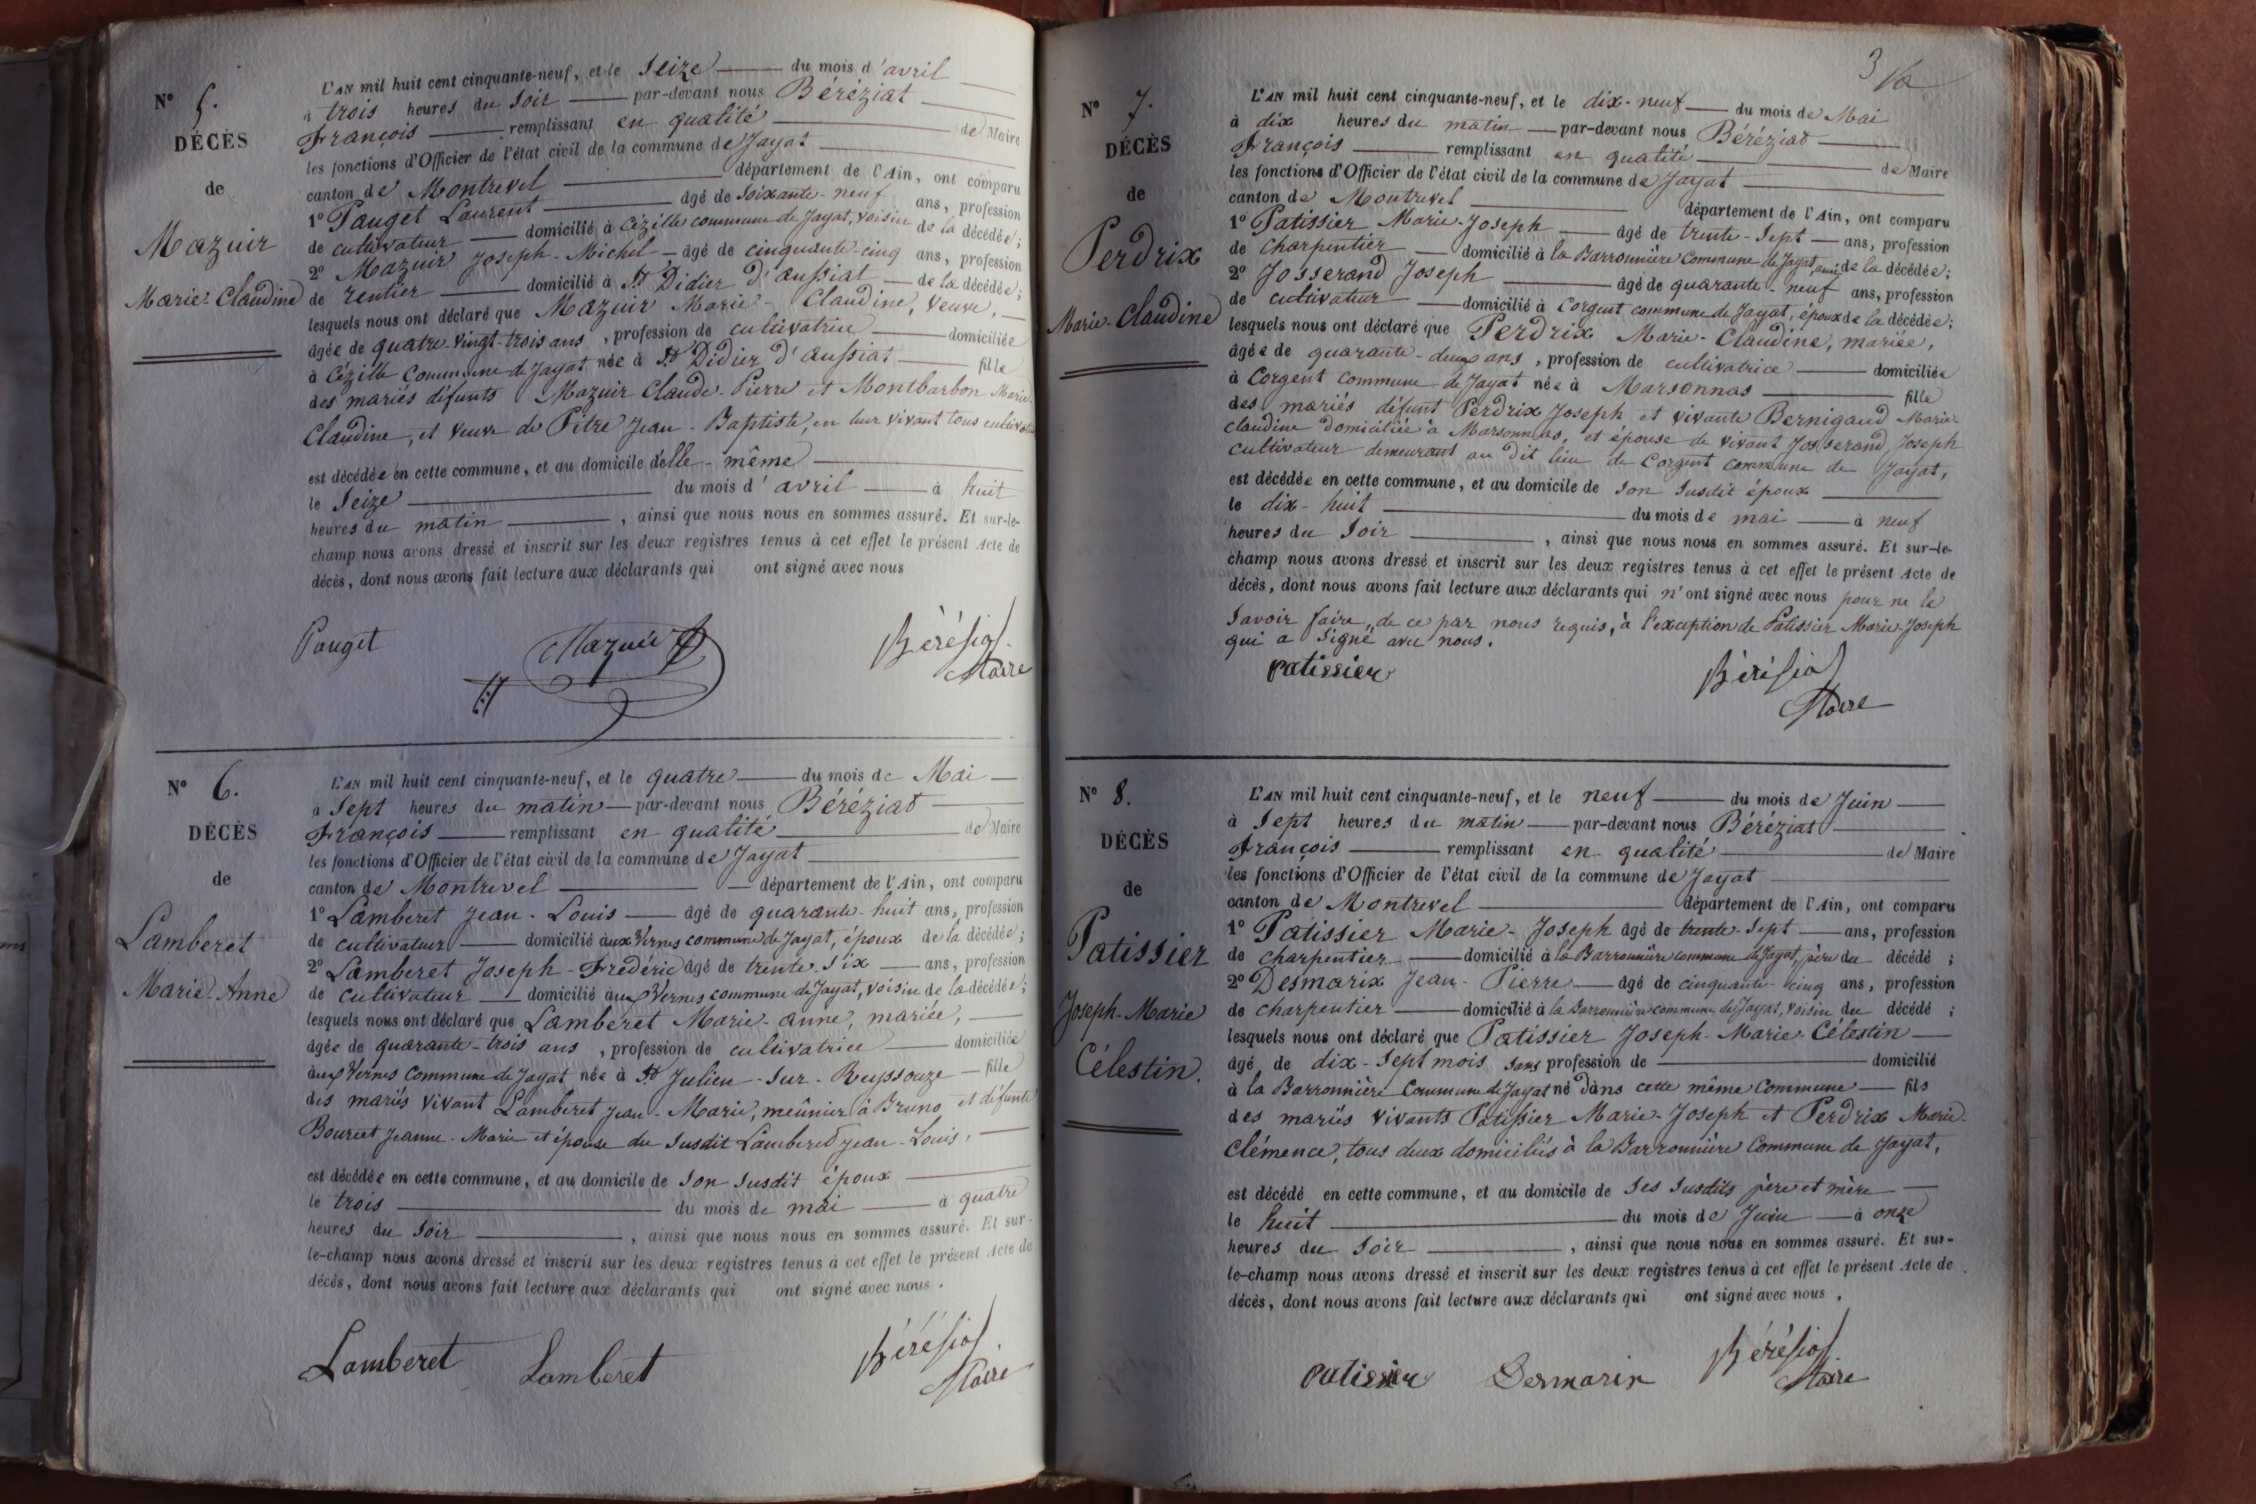 N° 5.
DÉCÈS
de
Mazuir
Marie-Claudine
L'AN mil huit cent cinquante-neuf, et le seize du mois d'avril
à trois heures du soir par-devant nous Béréziat
François remplissant en qualité de Maire
les fonctions d'Officier de l'état civil de la commune de Jayat
canton de Montrevel département de l'Ain, ont comparu
1° Pauget Laurent âgé de soixante-neuf ans, profession
de cultivateur domicilié à Cézille commune de Jayat, voisin de la décédée;
2° Mazuir Joseph-Michel âgé de cinquante-cinq ans, profession
de rentier domicilié à St Didier d'aussiat de la décédée;
lesquels nous ont déclaré que Mazuir Marie-Claudine, veuve,
âgée de quatre-vingt-trois ans, profession de cultivatrice domiciliée
à Cézille commune de Jayat née à St Didier d'aussiat fille
des mariés défunts Mazuir Claude-Pierre et Montbarbon Marie-
Claudine, et veuve de Pitre Jean-Baptiste, en leur vivant tous cultivateurs
est décédée en cette commune, et au domicile d'elle-même
le seize du mois d'avril à huit
heures du matin, ainsi que nous nous en sommes assuré. Et sur-le-
champ nous avons dressé et inscrit sur les deux registres tenus à cet effet le présent Acte de
décès, dont nous avons fait lecture aux déclarants qui ont signé avec nous
Pauget Mazuir Bérésiat
Maire
N° 6.
DÉCÈS
de
Lamberet
Marie-Anne
L'AN mil huit cent cinquante-neuf, et le quatre du mois de Mai
à sept heures du matin par-devant nous Béréziat
François remplissant en qualité de Maire
les fonctions d'Officier de l'état civil de la commune de Jayat
canton de Montrevel département de l'Ain, ont comparu
1° Lamberet Jean-Louis âgé de quarante-huit ans, profession
de cultivateur domicilié aux Vernes commune de Jayat, époux de la décédée;
2° Lamberet Joseph-Frédéric âgé de trente-six ans, profession
de cultivateur domicilié aux Vernes commune de Jayat, voisin de la décédée;
lesquels nous ont déclaré que Lamberet Marie-anne, mariée,
âgée de quarante-trois ans, profession de cultivatrice domiciliée
aux Vernes commune de Jayat née à St Julien-sur-Reyssouze fille
des mariés vivant Lamberet Jean-Marie, meûnier à Bruno et défunte
Bourcet Jeanne-Marie et épouse du susdit Lamberet Jean-Louis,
est décédée en cette commune, et au domicile de son susdit époux
le trois du mois de mai à quatre
heures du soir, ainsi que nous nous en sommes assuré. Et sur-
le-champ nous avons dressé et inscrit sur les deux registres tenus à cet effet le présent Acte de
décès, dont nous avons fait lecture aux déclarants qui ont signé avec nous.
Lamberet Lamberet Bérésiat
Maire
3
N° 7.
DÉCÈS
de
Perdrix
Marie-Claudine
L'AN mil huit cent cinquante-neuf, et le dix-neuf du mois de Mai
à dix heures du matin par-devant nous Béréziat
François remplissant en qualité de Maire
les fonctions d'Officier de l'état civil de la commune de Jayat
canton de Montrevel département de l'Ain, ont comparu
1° Patissier Marie-Joseph âgé de trente-sept ans, profession
de charpentier domicilié à la Barronnière commune de Jayat, ami de la décédée;
2° Josserand Joseph âgé de quarante-neuf ans, profession
de cultivateur domicilié à Corgent commune de Jayat, époux de la décédée;
lesquels nous ont déclaré que Perdrix Marie-Claudine, mariée,
âgée de quarante-deux ans, profession de cultivatrice domiciliée
à Corgent commune de Jayat née à Marsonnas fille
des mariés défunt Perdrix Joseph et vivante Bernigaud Marie-
claudine domiciliée à Marsonnas, et épouse de vivant Josserand Joseph
cultivateur demeurant au dit lieu de Corgent commune de Jayat,
est décédée en cette commune, et au domicile de son susdit époux
le dix-huit du mois de mai à neuf
heures du soir, ainsi que nous nous en sommes assuré. Et sur-le-
champ nous avons dressé et inscrit sur les deux registres tenus à cet effet le présent Acte de
décès, dont nous avons fait lecture aux déclarants qui n'ont signé avec nous pour ne le
savoir faire, de ce par nous requis, à l'exception de Patissier Marie-Joseph
qui a signé avec nous.
patissier Bérésiat
Maire
N° 8.
DÉCÈS
de
Patissier
Joseph-Marie
Célestin.
L'AN mil huit cent cinquante-neuf, et le neuf du mois de Juin
à sept heures du matin par-devant nous Béréziat
François remplissant en qualité de Maire
les fonctions d'Officier de l'état civil de la commune de Jayat
canton de Montrevel département de l'Ain, ont comparu
1° Patissier Marie-Joseph âgé de trente-sept ans, profession
de charpentier domicilié à la Barronnière commune de Jayat, père du décédé;
2° Desmarix Jean-Pierre âgé de cinquante-cinq ans, profession
de charpentier domicilié à la Barronnière commune de Jayat, voisin du décédé;
lesquels nous ont déclaré que Patissier Joseph-Marie-Célestin
âgé de dix-sept mois sans profession de domicilié
à la Barronnière commune de Jayat né dans cette même commune fils
des mariés vivants Patissier Marie-Joseph et Perdrix Marie-
Clémence, tous deux domiciliés à la Barronnière commune de Jayat,
est décédé en cette commune, et au domicile de ses susdits père et mère
le huit du mois de Juin à onze
heures du soir, ainsi que nous nous en sommes assuré. Et sur-
le-champ nous avons dressé et inscrit sur les deux registres tenus à cet effet le présent Acte de
décès, dont nous avons fait lecture aux déclarants qui ont signé avec nous.
patissier Desmarix Bérésiat
Maire